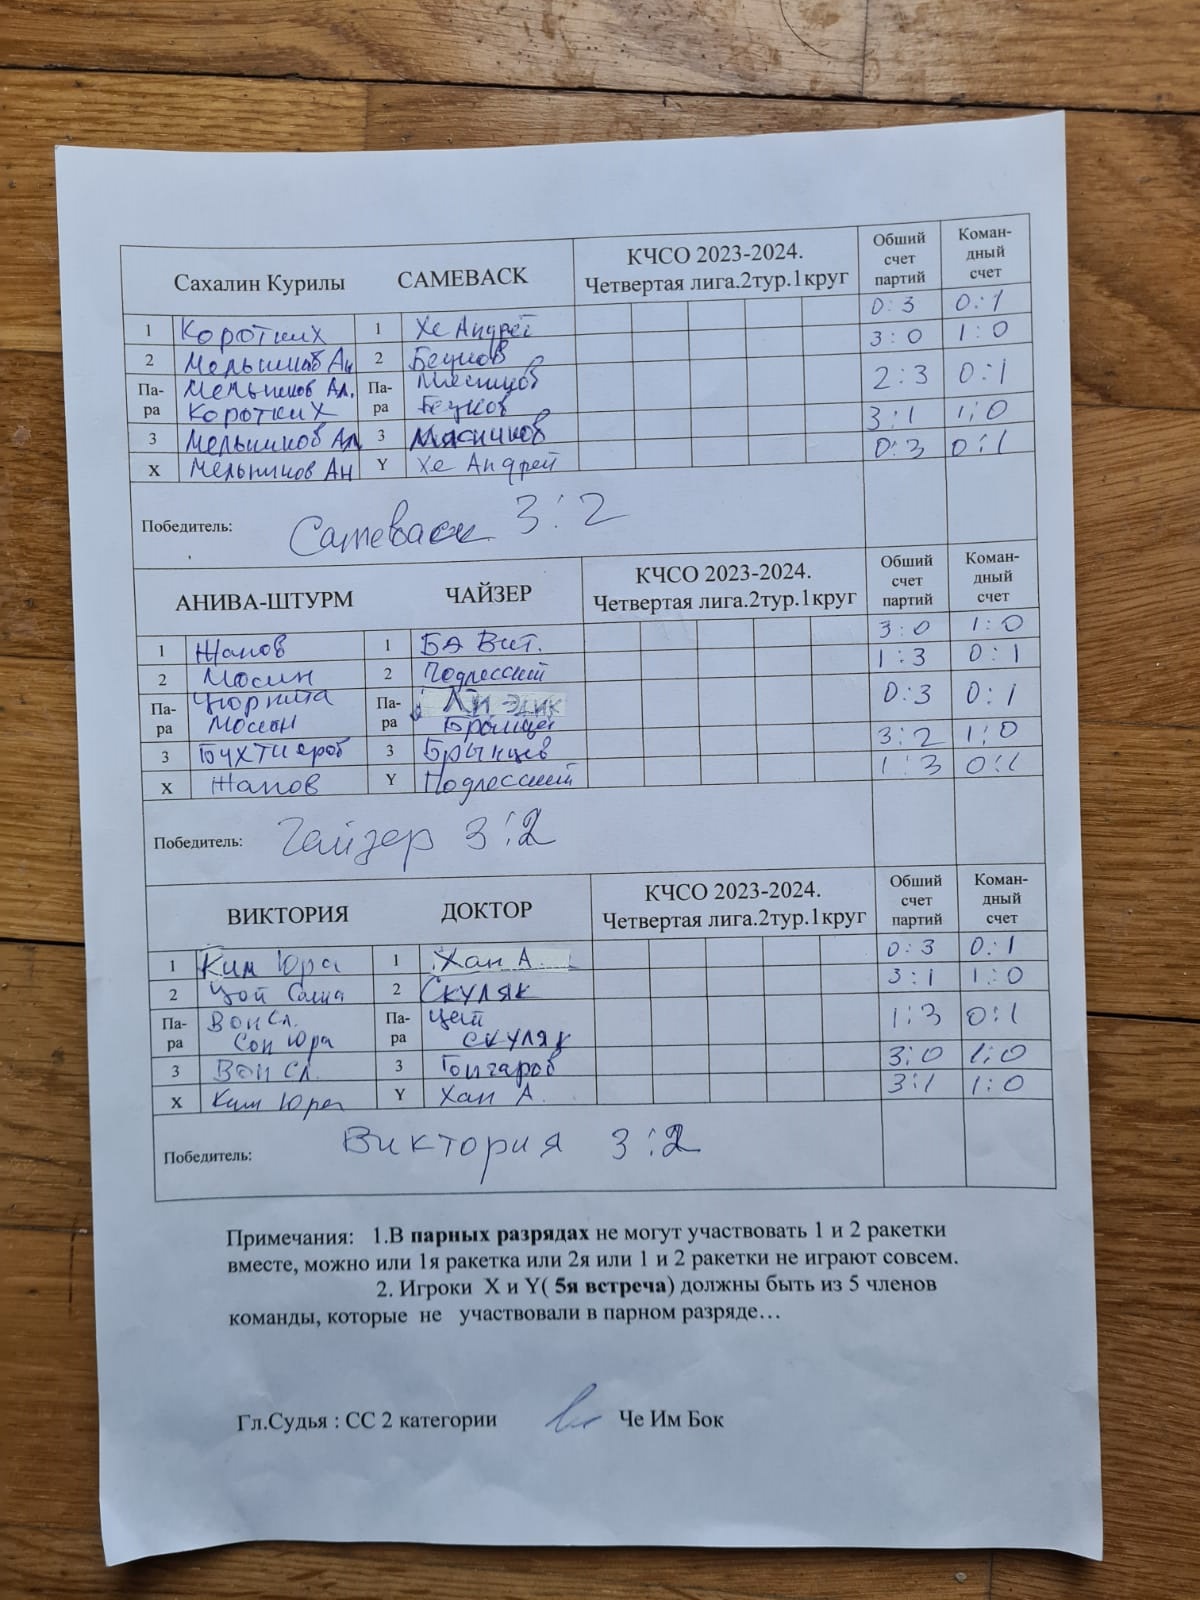 Сахалин Курилы CAMEBACK КЧСО 2023-2024. Четвертая лига.2тур.1круг Обший счет партий Коман-дный счет
1 Коротких 1 Хе Андрей 0:3 0:1
2 Мельников Ан 2 Бецков 3:0 1:0
Па-ра Мельников Ал. Па-ра Мясников 2:3 0:1
Коротких Бецков
3 Мельников Ал 3 Мясников 3:1 1:0
X Мельников Ан Y Хе Андрей 0:3 0:1
Победитель: Cameback 3:2
АНИВА-ШТУРМ ЧАЙЗЕР КЧСО 2023-2024. Четвертая лига.2тур.1круг Обший счет партий Коман-дный счет
1 Жапов 1 БА Вит. 3:0 1:0
2 Мосин 2 Подлесний 1:3 0:1
Па-ра Па-ра Ли Эдик 0:3 0:1
Мосин Брынцев
3 3 Брынцев 3:2 1:0
X Жапов Y Подлесний 1:3 0:1
Победитель: Чайзер 3:2
ВИКТОРИЯ ДОКТОР КЧСО 2023-2024. Четвертая лига.2тур.1круг Обший счет партий Коман-дный счет
1 Ким Юра 1 Хан А. 0:3 0:1
2 Цой Саша 2 Скуляк 3:1 1:0
Па-ра Вон Сл. Па-ра Цой 1:3 0:1
Сон Юра Скуляк
3 Вон Сл. 3 Гончаров 3:0 1:0
X Ким Юра Y Хан А. 3:1 1:0
Победитель: Виктория 3:2
Примечания: 1.В парных разрядах не могут участвовать 1 и 2 ракетки
вместе, можно или 1я ракетка или 2я или 1 и 2 ракетки не играют совсем.
2. Игроки X и Y( 5я встреча) должны быть из 5 членов
команды, которые не участвовали в парном разряде…
Гл.Судья : СС 2 категории Че Им Бок